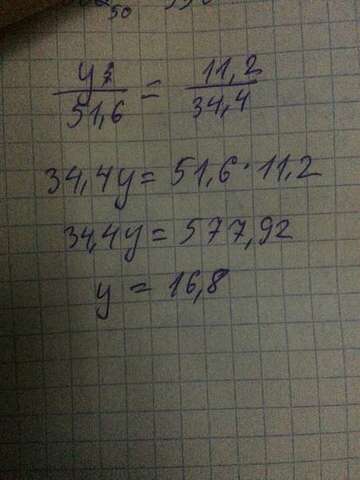 50
y/51,6 = 11,2/34,4
34,4y = 51,6 · 11,2
34,4y = 577,92
y = 16,8